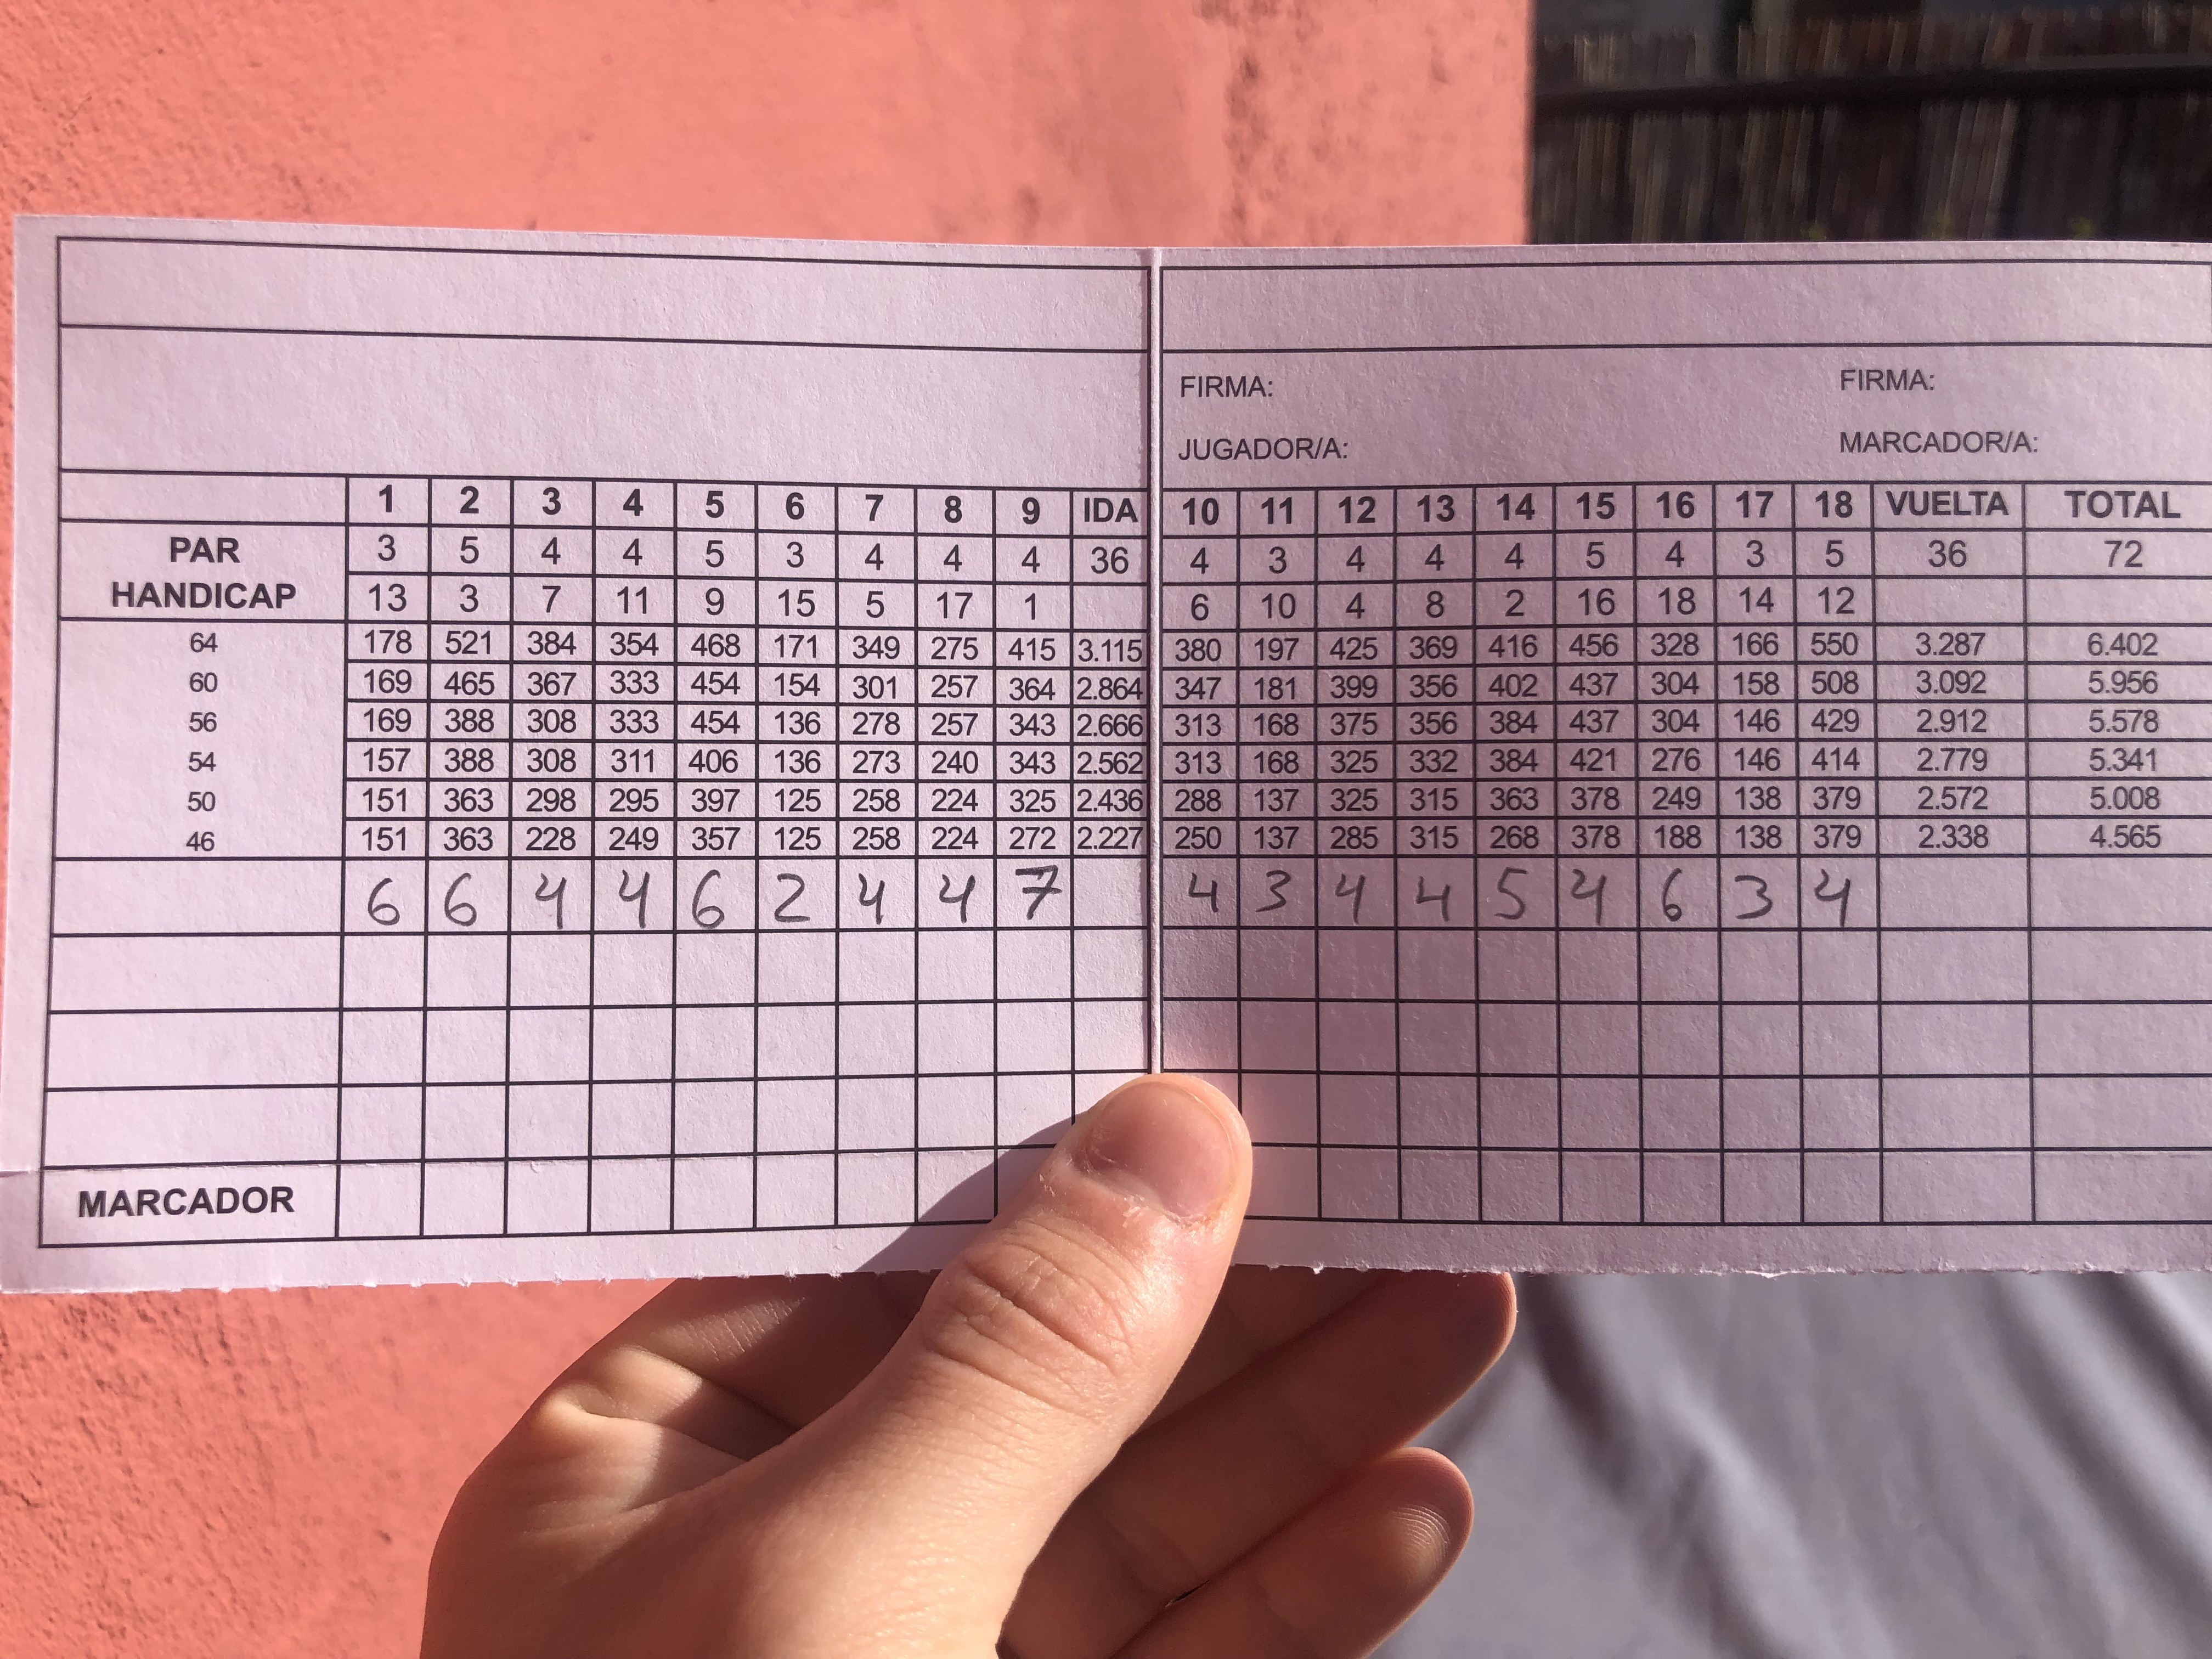 FIRMA: FIRMA:
JUGADOR/A: MARCADOR/A:
1 2 3 4 5 6 7 8 9 IDA 10 11 12 13 14 15 16 17 18 VUELTA TOTAL
PAR 3 5 4 4 5 3 4 4 4 36 4 3 4 4 4 5 4 3 5 36 72
HANDICAP 13 3 7 11 9 15 5 17 1 6 10 4 8 2 16 18 14 12
64 178 521 384 354 468 171 349 275 415 3.115 380 197 425 369 416 456 328 166 550 3.287 6.402
60 169 465 367 333 454 154 301 257 364 2.864 347 181 399 356 402 437 304 158 508 3.092 5.956
56 169 388 308 333 454 136 278 257 343 2.666 313 168 375 356 384 437 304 146 429 2.912 5.578
54 157 388 308 311 406 136 273 240 343 2.562 313 168 325 332 384 421 276 146 414 2.779 5.341
50 151 363 298 295 397 125 258 224 325 2.436 288 137 325 315 363 378 249 138 379 2.572 5.008
46 151 363 228 249 357 125 258 224 272 2.227 250 137 285 315 268 378 188 138 379 2.338 4.565
6 6 4 4 6 2 4 4 7 4 3 4 4 5 4 6 3 4
MARCADOR